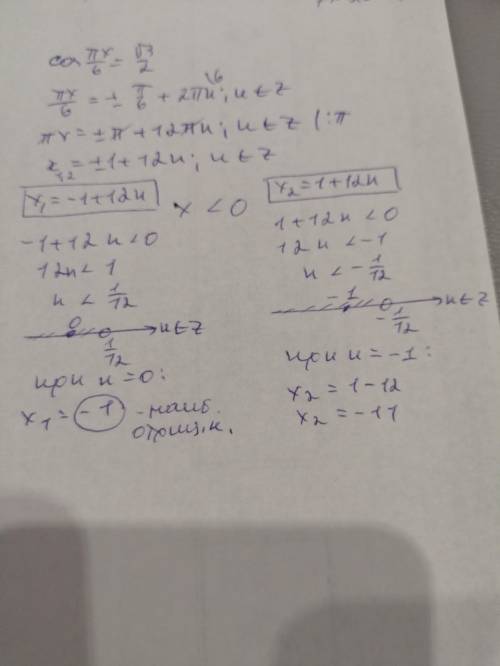 cos πx/6 = √3/2
πx/6 = ± π/6 + 2πn; n ∈ Z \6
πx = ±π + 12πn; n ∈ Z | :π
x₁,₂ = ±1 + 12n; n ∈ Z
x₁ = -1 + 12n
x < 0
-1 + 12n < 0
12n < 1
n < 1/12
0 1/12 n ∈ Z
при n = 0:
x₁ = -1 - наиб. отриц. к.
x₂ = 1 + 12n
1 + 12n < 0
12n < -1
n < -1/12
-1 -1/12 n ∈ Z
при n = -1:
x₂ = 1 - 12
x₂ = -11